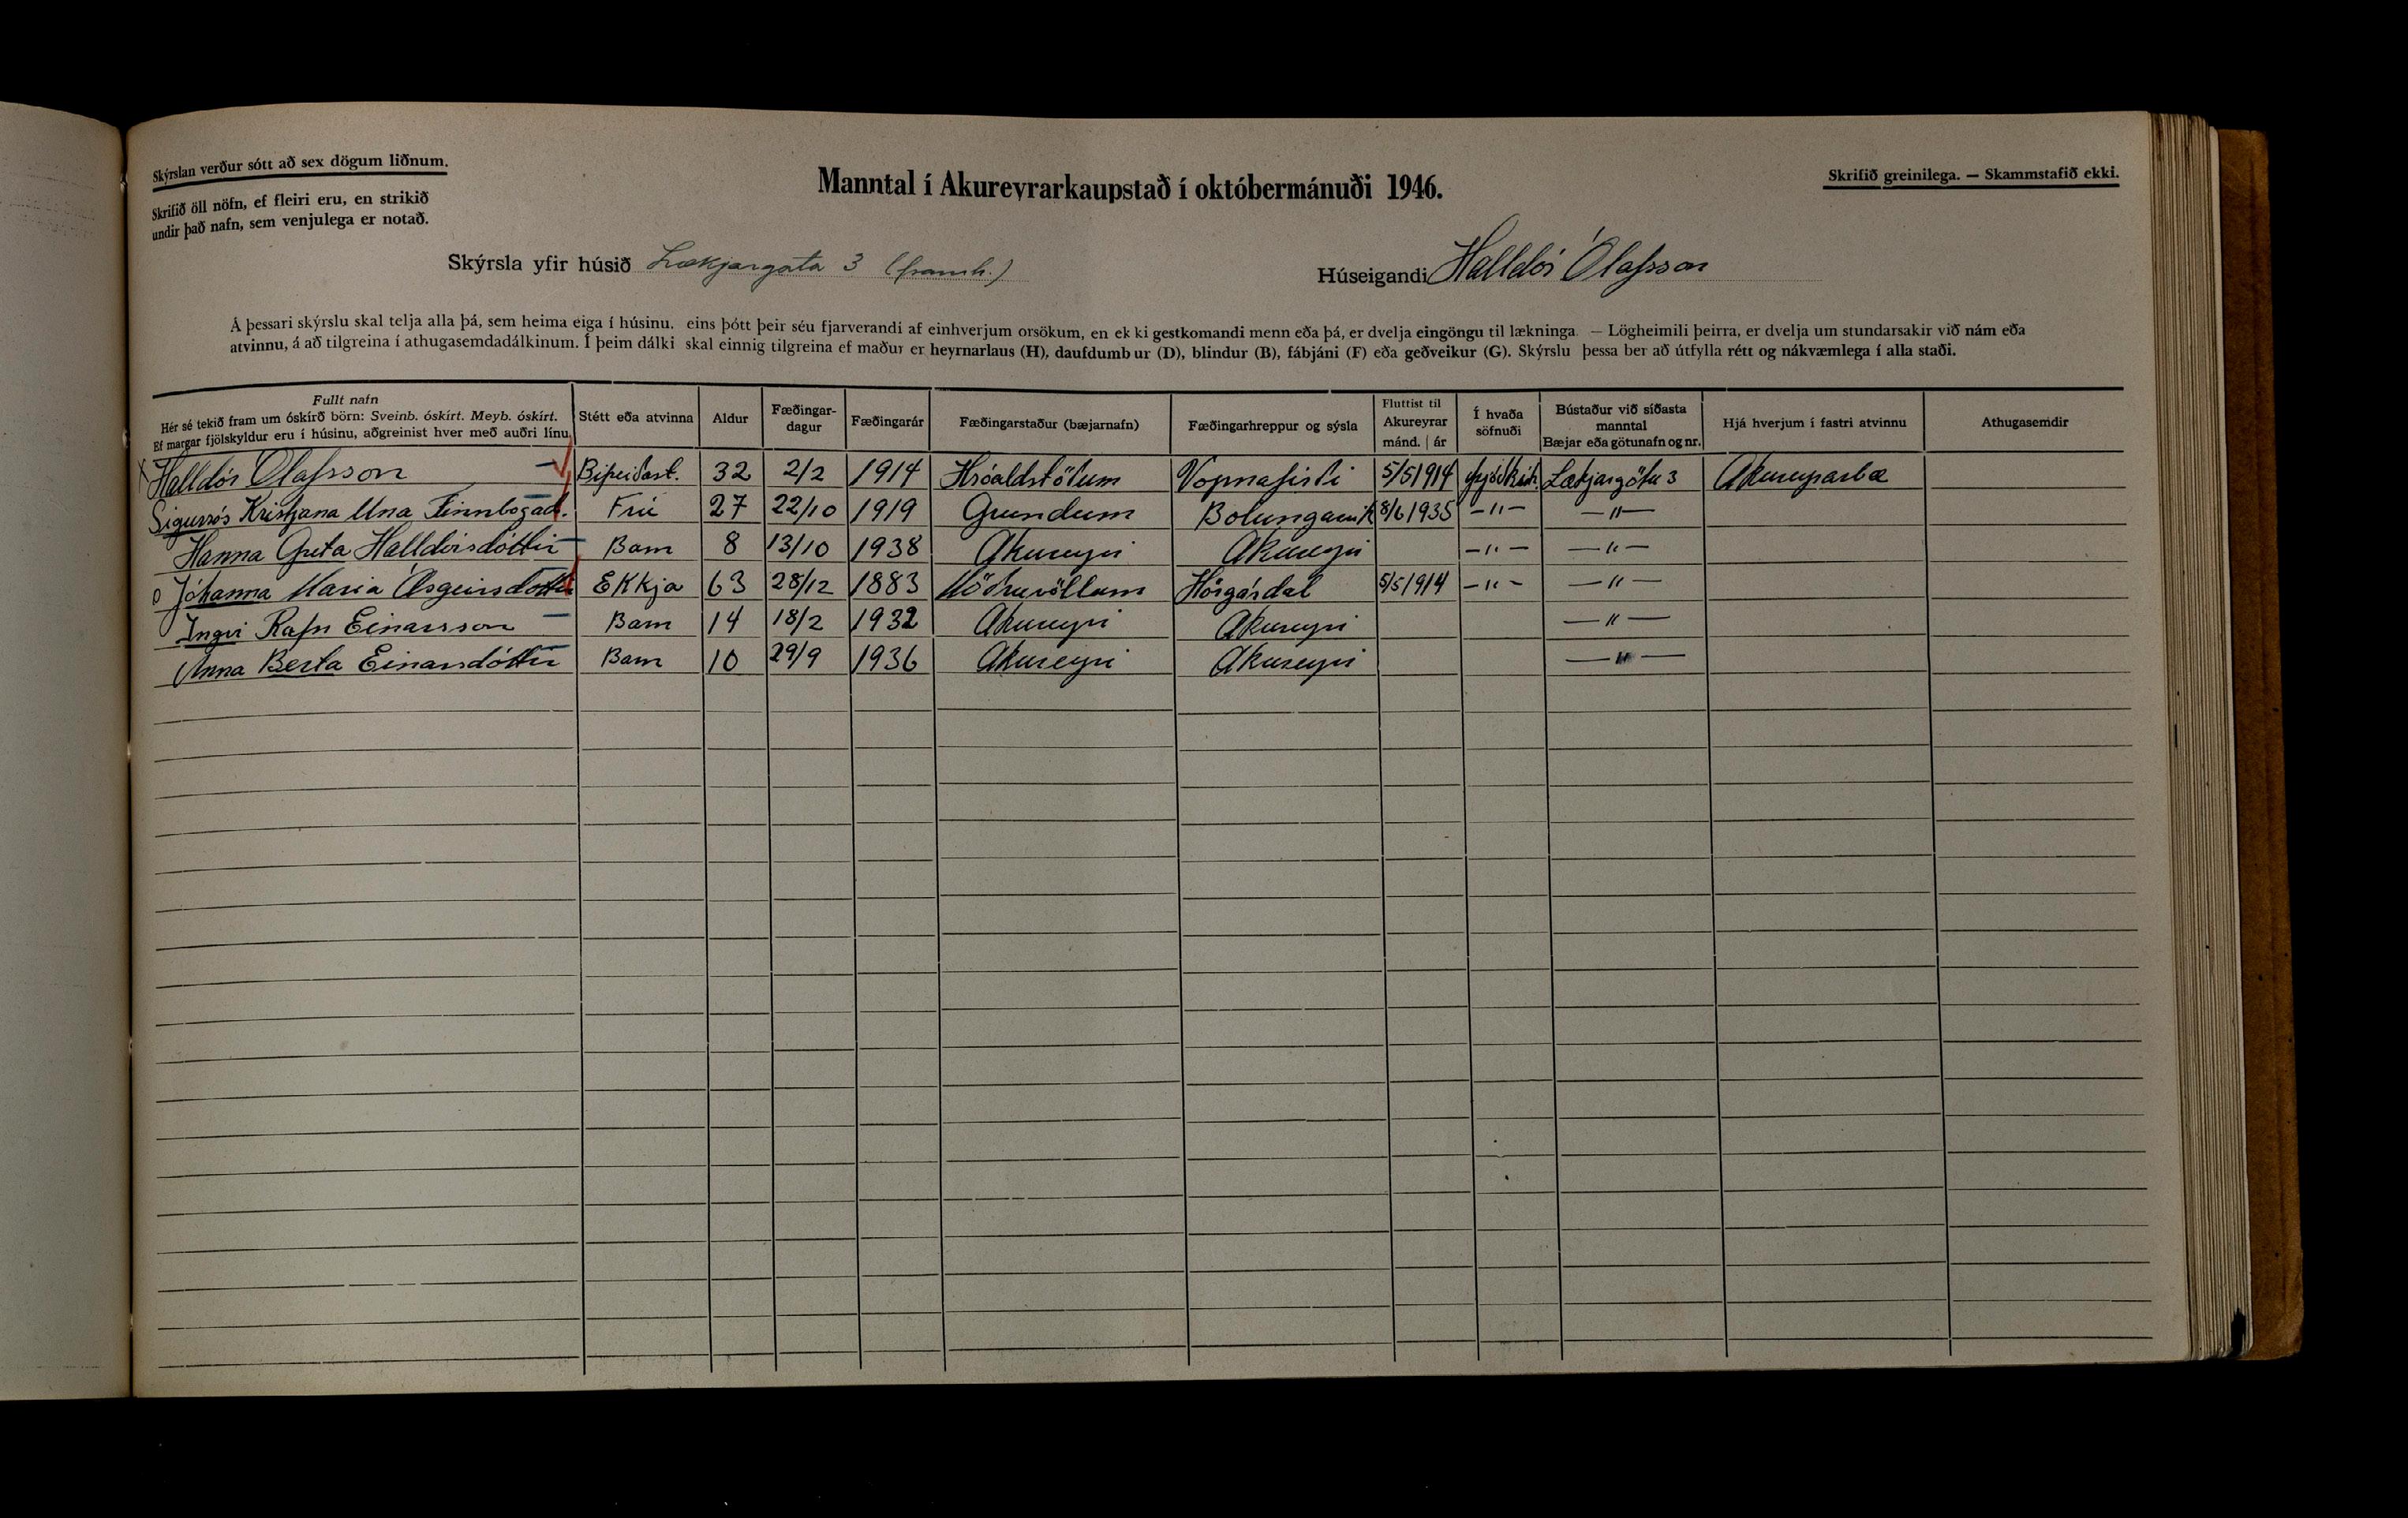 Skýrslan verður sótt að sex dögum liðnum.
Skrifið öll nöfn, ef fleiri eru, en strikið
undir það nafn, sem venjulega er notað.
Manntal í Akureyrarkaupstað í októbermánuði 1946.
Skrifið greinilega. — Skammstafið ekki.
Skýrsla yfir húsið Lækjargata 3 (framh.)
Húseigandi Halldór Ólafsson
Á þessari skýrslu skal telja alla þá, sem heima eiga í húsinu, eins þótt þeir séu fjarverandi af einhverjum orsökum, en ekki gestkomandi menn eða þá, er dvelja eingöngu til lækninga. — Lögheimili þeirra, er dvelja um stundarsakir við nám eða
atvinnu, á að tilgreina í athugasemdadálkinum. Í þeim dálki skal einnig tilgreina ef maður er heyrnarlaus (H), daufdumbur (D), blindur (B), fábjáni (F) eða geðveikur (G). Skýrslu þessa ber að útfylla rétt og nákvæmlega í alla staði.
Fullt nafn
Hér sé tekið fram um óskírð börn: Sveinb. óskírt. Meyb. óskírt.
Ef margar fjölskyldur eru í húsinu, aðgreinist hver með auðri línu.
Stétt eða atvinna
Aldur
Fæðingar-
dagur
Fæðingarár
Fæðingarstaður (bæjarnafn)
Fæðingarhreppur og sýsla
Fluttist til
Akureyrar
mánd. | ár
Í hvaða
söfnuði
Bústaður við síðasta
manntal
Bæjar eða götunafn og nr.
Hjá hverjum í fastri atvinnu
Athugasemdir
Halldór Ólafsson Bifreiðast. 32 2/2 1914 Hróaldstöðum Vopnafirði 5/5 1914 Þjóðkirk. Lækjargötu 3 Akureyrarbæ
Sigurrós Kristjana Una Finnbogad. Frú 27 22/10 1919 Grundum Bolungavik 8/6 1935 —"— —"—
Hanna Greta Halldórsdóttir Barn 8 13/10 1938 Akureyri Akureyri —"— —"—
o Jóhanna María Ásgeirsdóttir Ekkja 63 28/12 1883 Möðruvöllum Hörgárdal 5/5 1914 —"— —"—
Ingvi Rafn Einarsson Barn 14 18/2 1932 Akureyri Akureyri —"—
Anna Berta Einarsdóttir Barn 10 29/9 1936 Akureyri Akureyri —"—